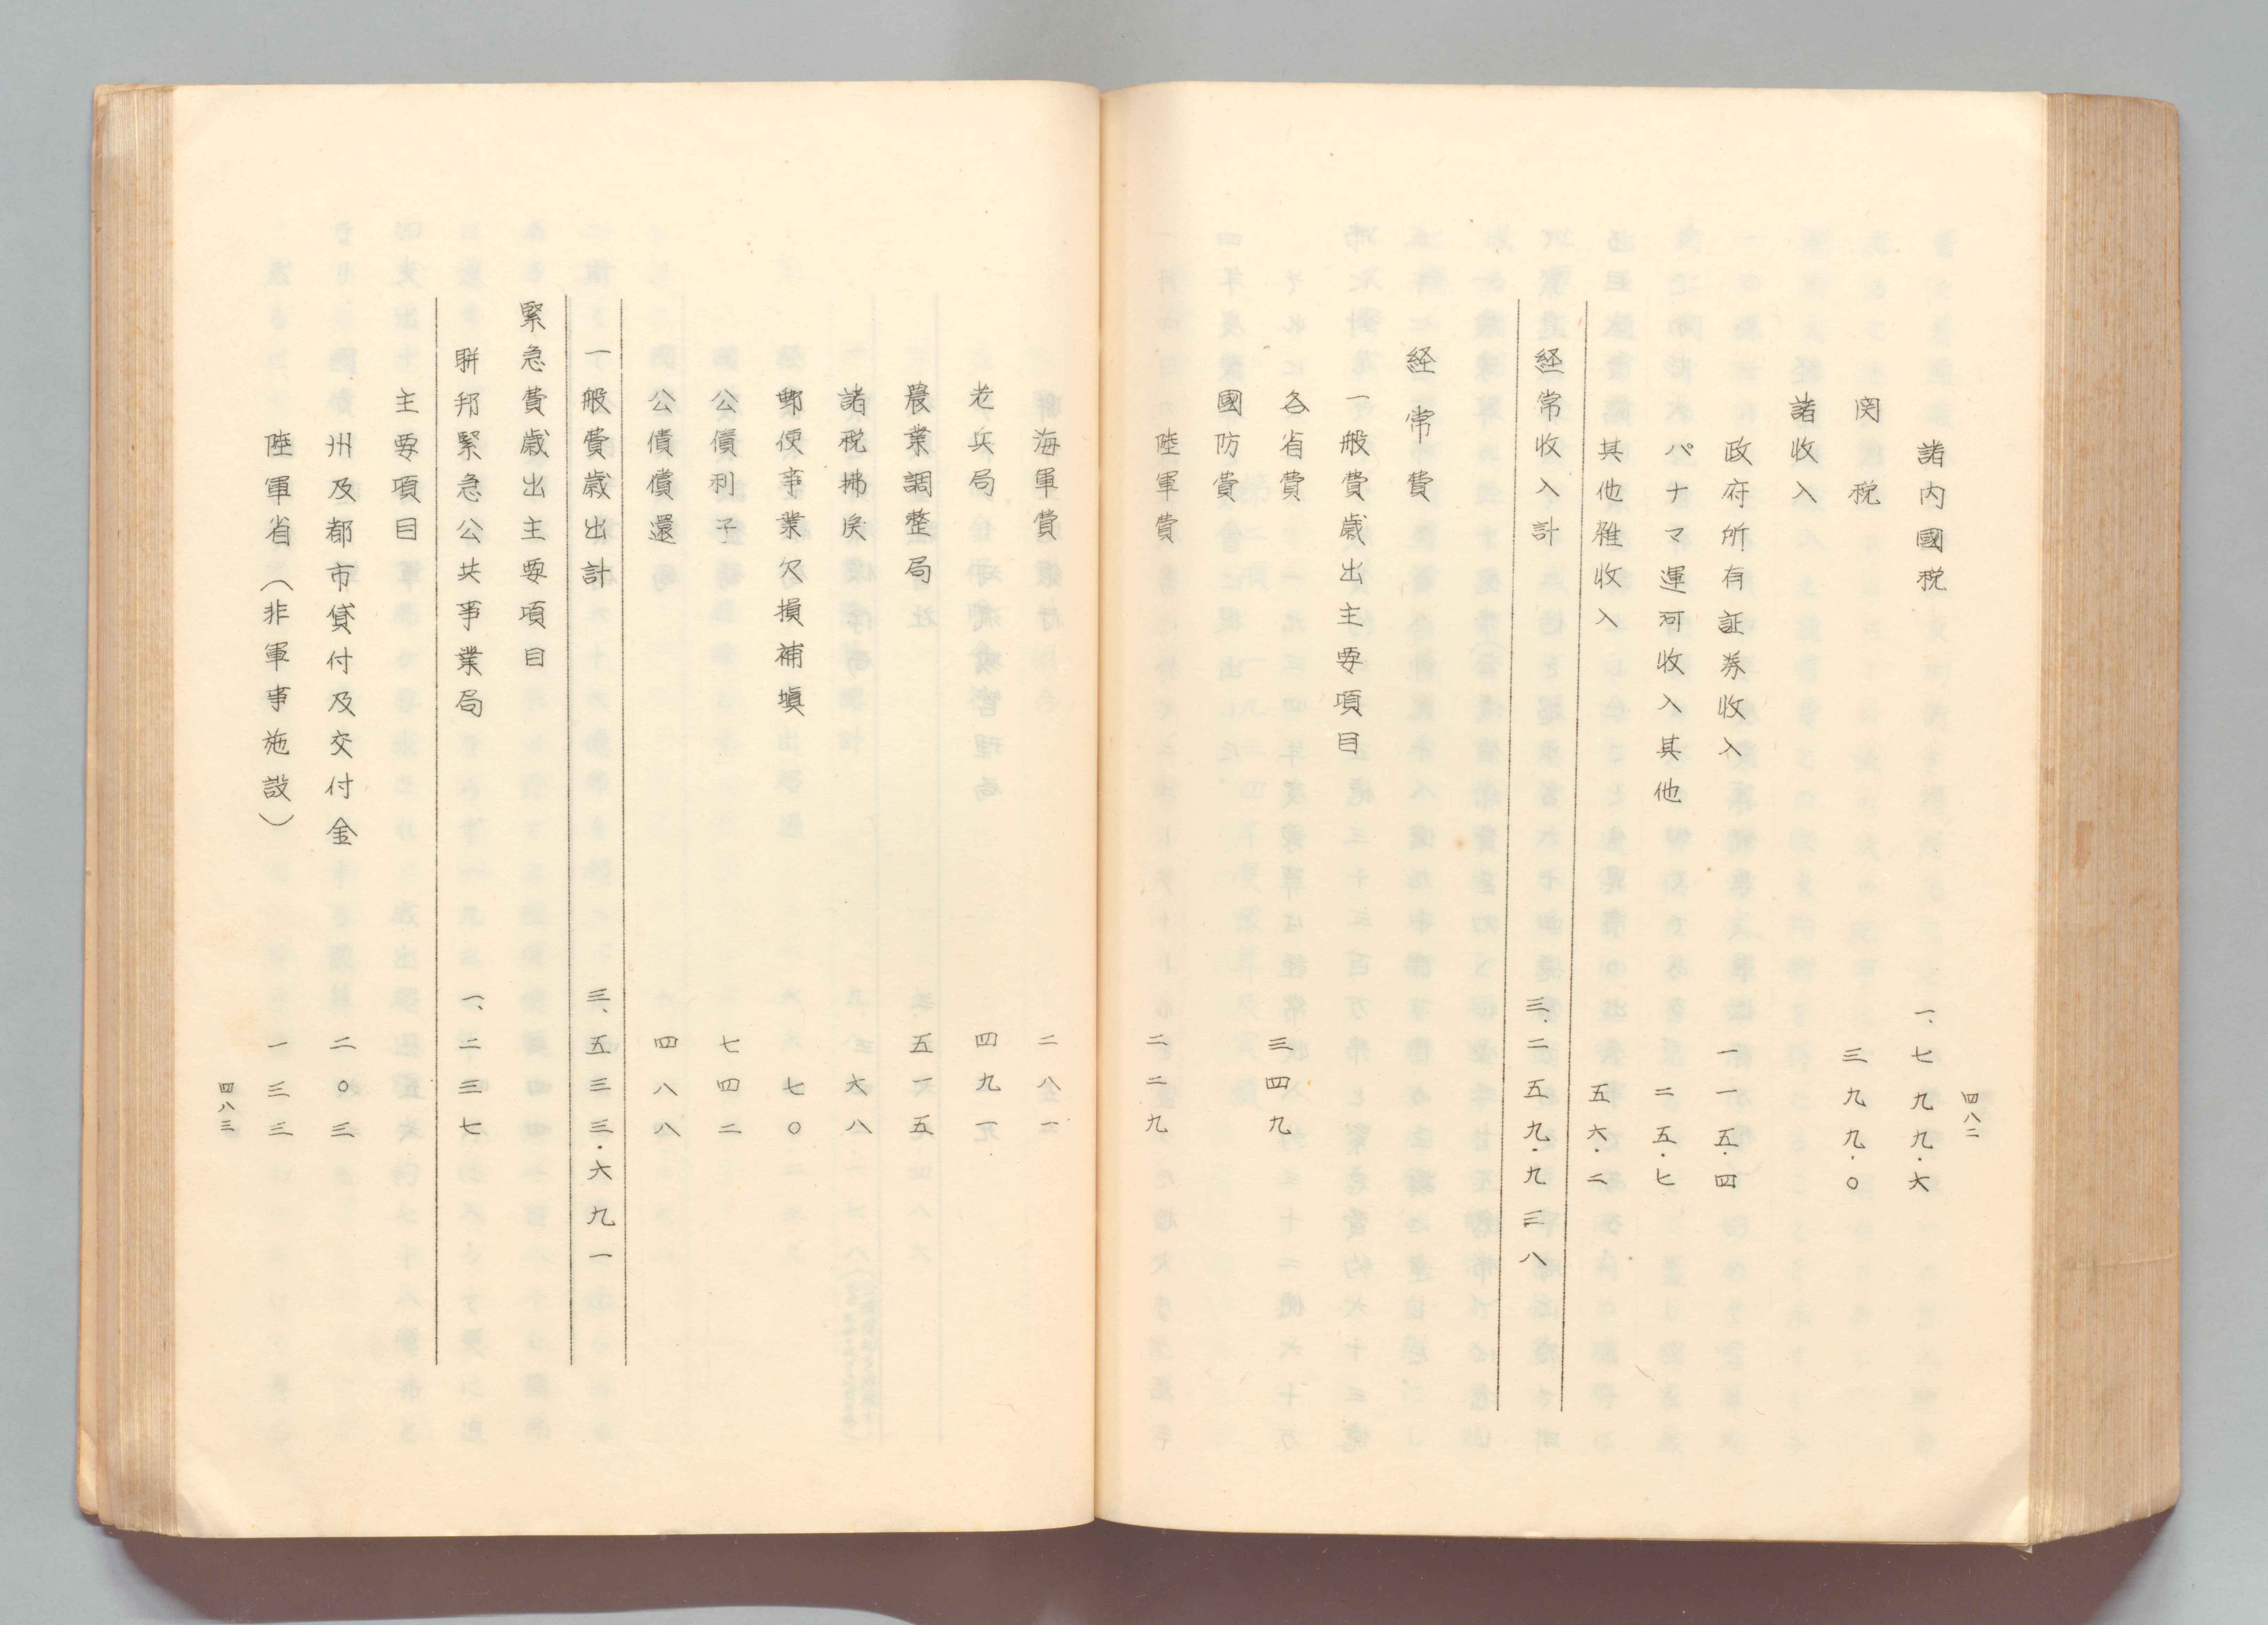 諸内國税 一、七九九・六
関税 三九九・〇
諸收入
政府所有証券收入 一一五・四
パナマ運河收入其他 二五・七
其他雑收入 五六・二
経常收入計 三、二五九・九三八
経常費
一般費歳出主要項目
各省費 三四九
國防費
陸軍費 二二九
四八二
海軍費 二八一
老兵局 四九一
農業調整局 五一五
諸税拂戻 六八
郵便事業欠損補塡 七〇
公債利子 七四二
公債償還 四八八
一般費歳出計 三、五三三・六九一
緊急費歳出主要項目
聨邦緊急公共事業局 一、二三七
主要項目
州及都市貸付及交付金 二〇三
陸軍省（非軍事施設） 一三三
四八三